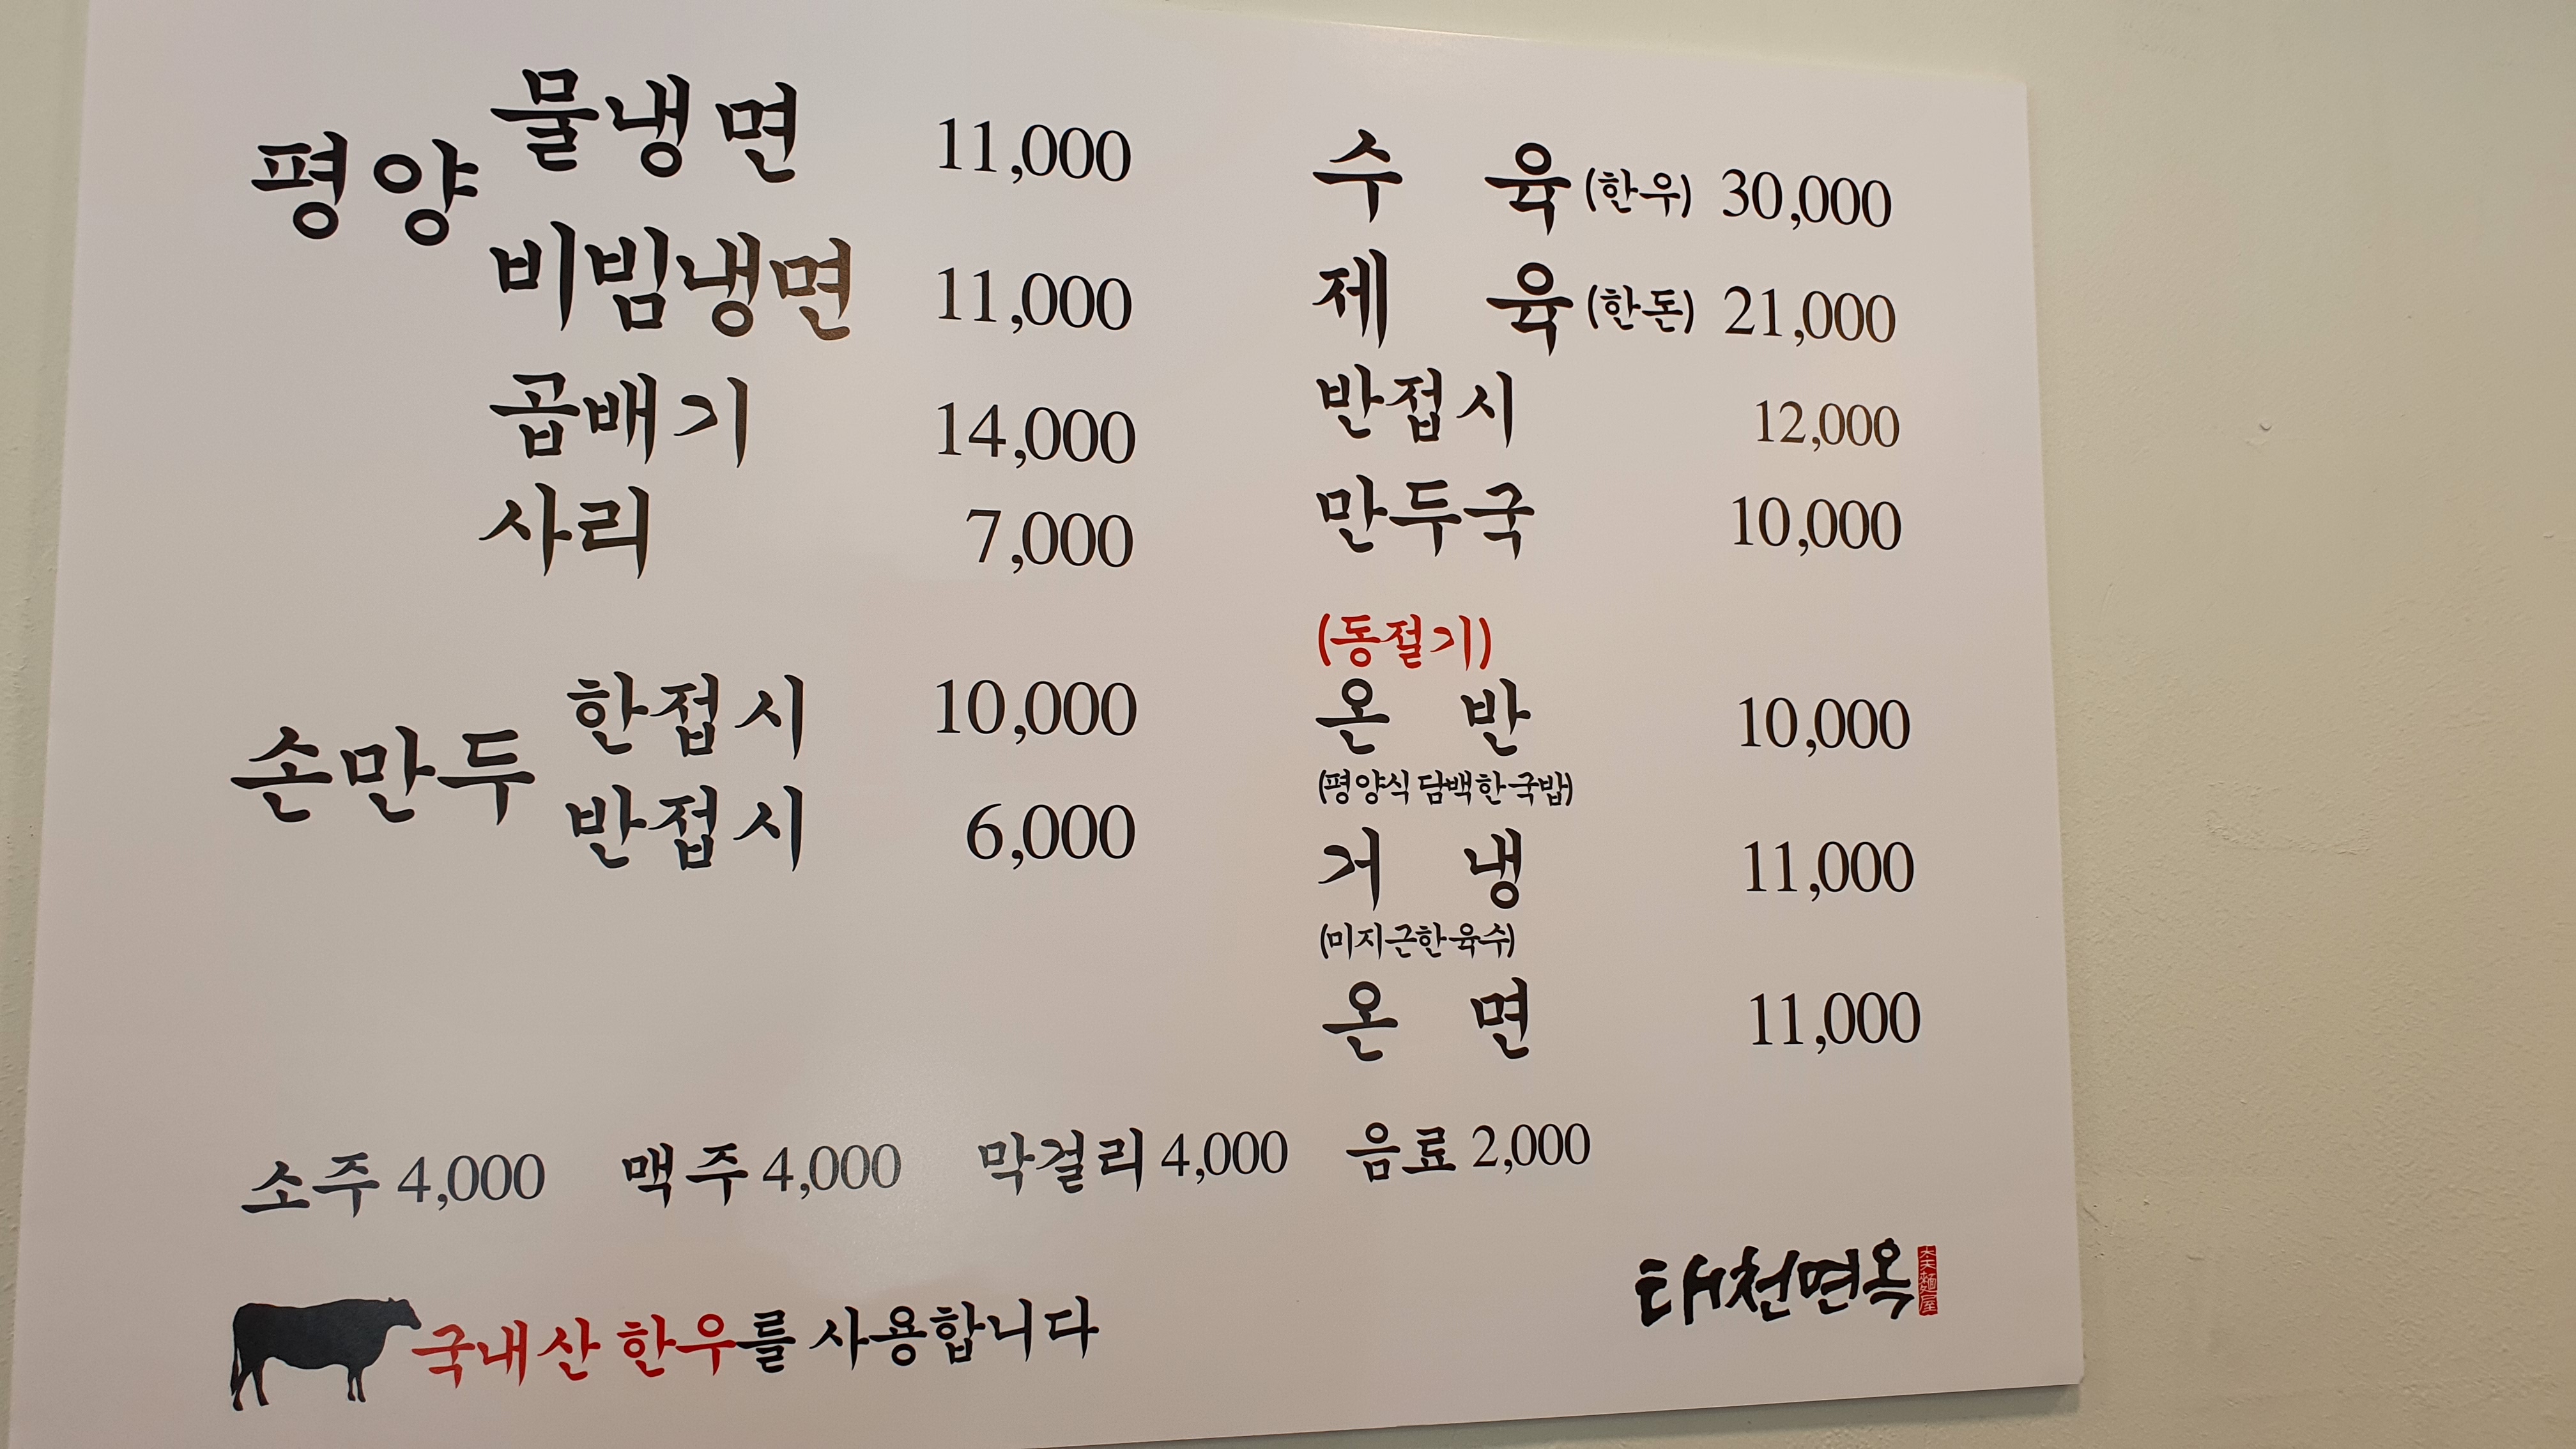 평양
물냉면 11,000
비빔냉면 11,000
곱배기 14,000
사리 7,000
손만두
한접시 10,000
반접시 6,000
수 육 (한우) 30,000
제 육 (한돈) 21,000
반접시 12,000
만두국 10,000
(동절기)
온 반 10,000
(평양식 담백한 국밥)
거 냉 11,000
(미지근한 육수)
온 면 11,000
소주 4,000 맥주 4,000 막걸리 4,000 음료 2,000
국내산 한우를 사용합니다
태천면옥